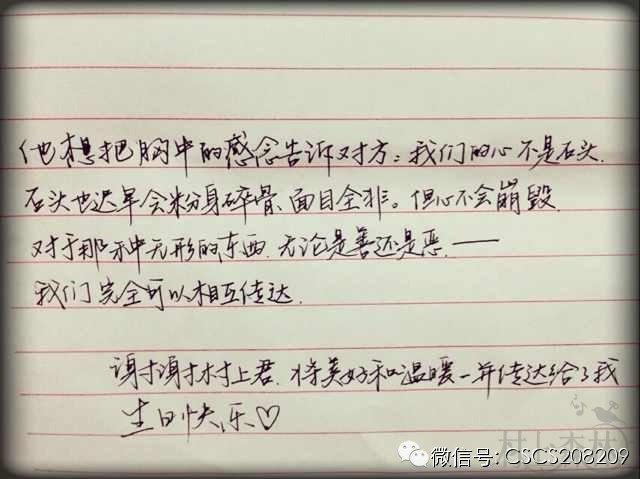 他想把胸中的感念告诉对方：我们的心不是石头.
石头也迟早会粉身碎骨、面目全非。但心不会崩毁.
对于那种无形的东西.无论是善还是恶.——
我们完全可以相互传达.
谢谢村上君.将美好和温暖一并传达给了我
生日快乐♡
村上森林
微信号: CSCS208209